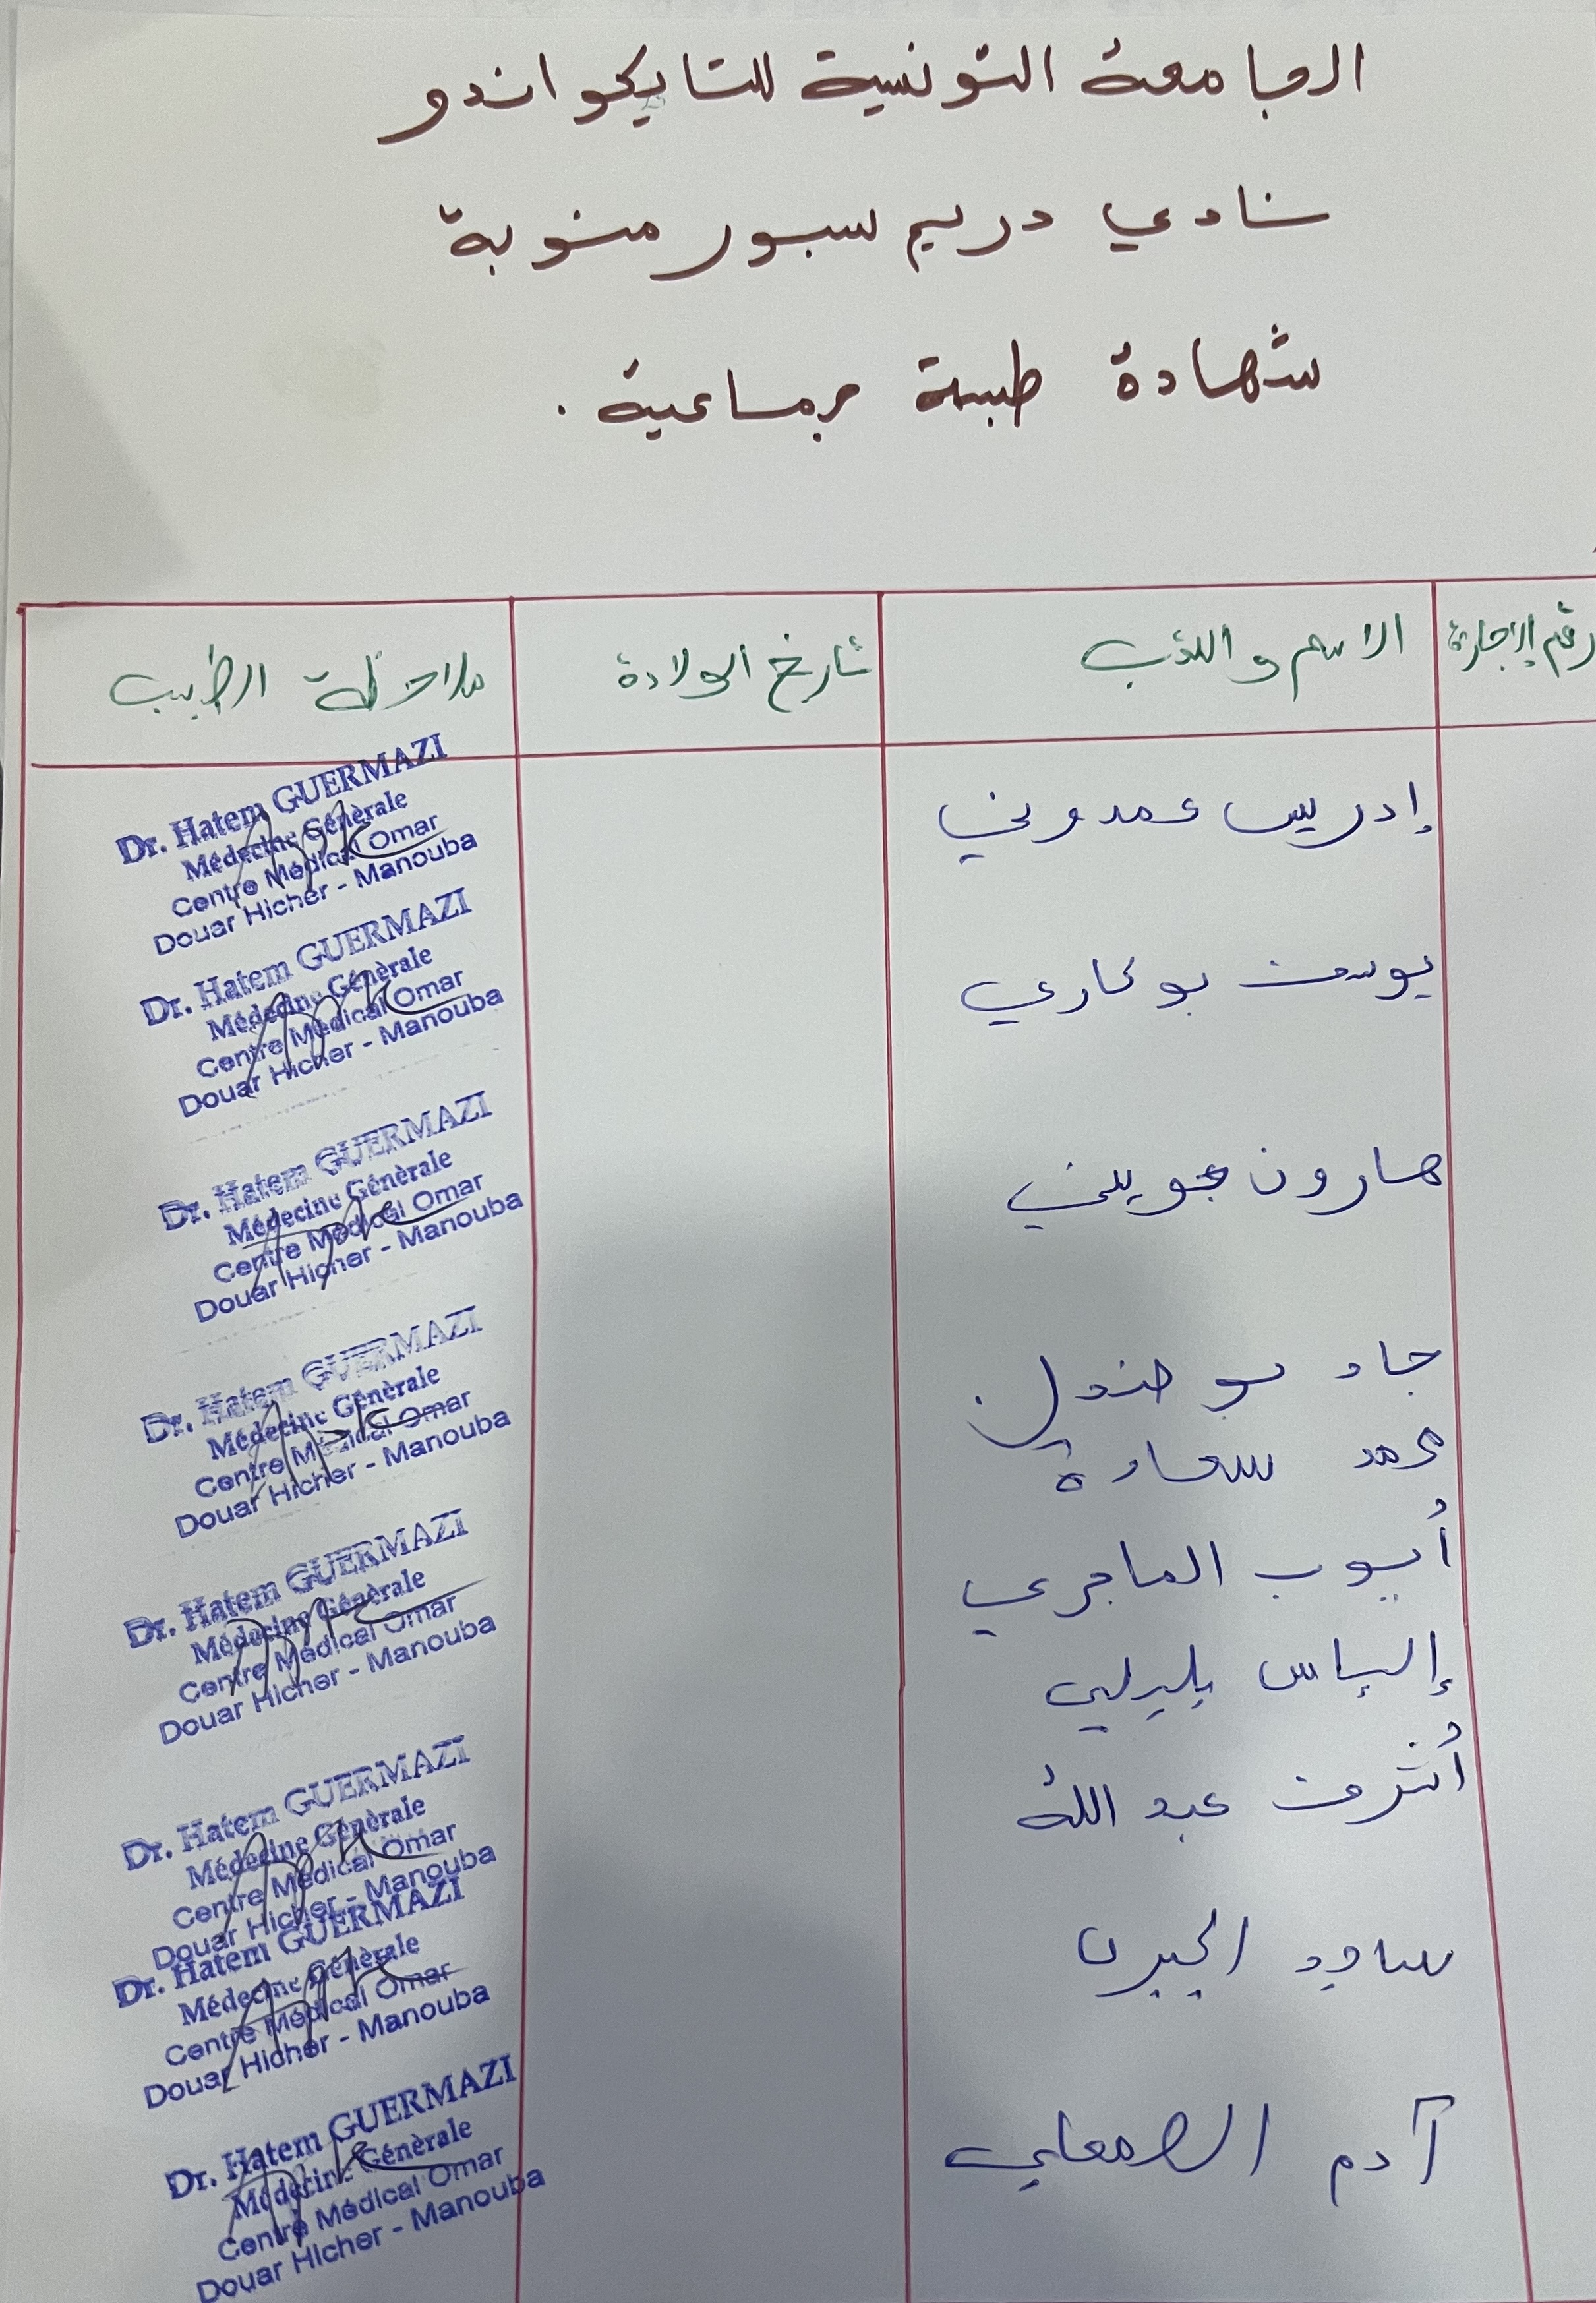 الجامعة التونسية للتايكواندو
نادي دريم سبور منوبة
شهادة طبية جماعية .
رقم الإجازة
الاسم واللقب
تاريخ الولادة
ملاحظة الطبيب
إدريس عمدوني
Dr. Hatem GUERMAZI
Médecine Générale
Centre Médical Omar
Douar Hicher - Manouba
يوسف بوكاري
Dr. Hatem GUERMAZI
Médecine Générale
Centre Médical Omar
Douar Hicher - Manouba
هارون جويني
Dr. Hatem GUERMAZI
Médecine Générale
Centre Médical Omar
Douar Hicher - Manouba
جاد بو
Dr. Hatem GUERMAZI
Médecine Générale
Centre Médical Omar
Douar Hicher - Manouba
محمد سعادة
أيوب الماجري
Dr. Hatem GUERMAZI
Médecine Générale
Centre Médical Omar
Douar Hicher - Manouba
إلياس
أشرف عبد الله
Dr. Hatem GUERMAZI
Médecine Générale
Centre Médical Omar
Douar Hicher - Manouba
Dr. Hatem GUERMAZI
Médecine Générale
Centre Médical Omar
Douar Hicher - Manouba
آدم
Dr. Hatem GUERMAZI
Médecine Générale
Centre Médical Omar
Douar Hicher - Manouba